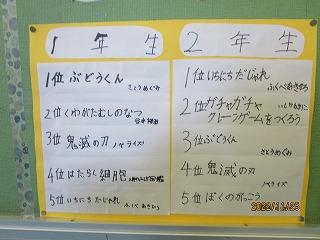 1 年 生
1位 ぶどうくん
さとうめぐみ
2位 くわがたむしのなつ
3位 鬼滅の刃 ノベライズ
4位 はたらく細胞
5位 いちにちだじゃれ
ふくべあきひろ
2 年 生
1位 いちにちだじゃれ
ふくべあきひろ
2位 ガチャガチャ
クレーンゲームをつくろう
3位 ぶどうくん
さとうめぐみ
4位 鬼滅の刃
ノベライズ
5位 ぼくのがっこう
2022/11/25